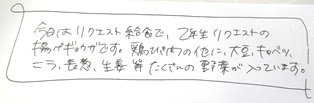 今日はリクエスト給食で、2年生リクエストの
揚げギョウザです。鶏ひき肉の他に、大豆、キャベツ、
ニラ、長葱、生姜等たくさんの野菜が入っています。